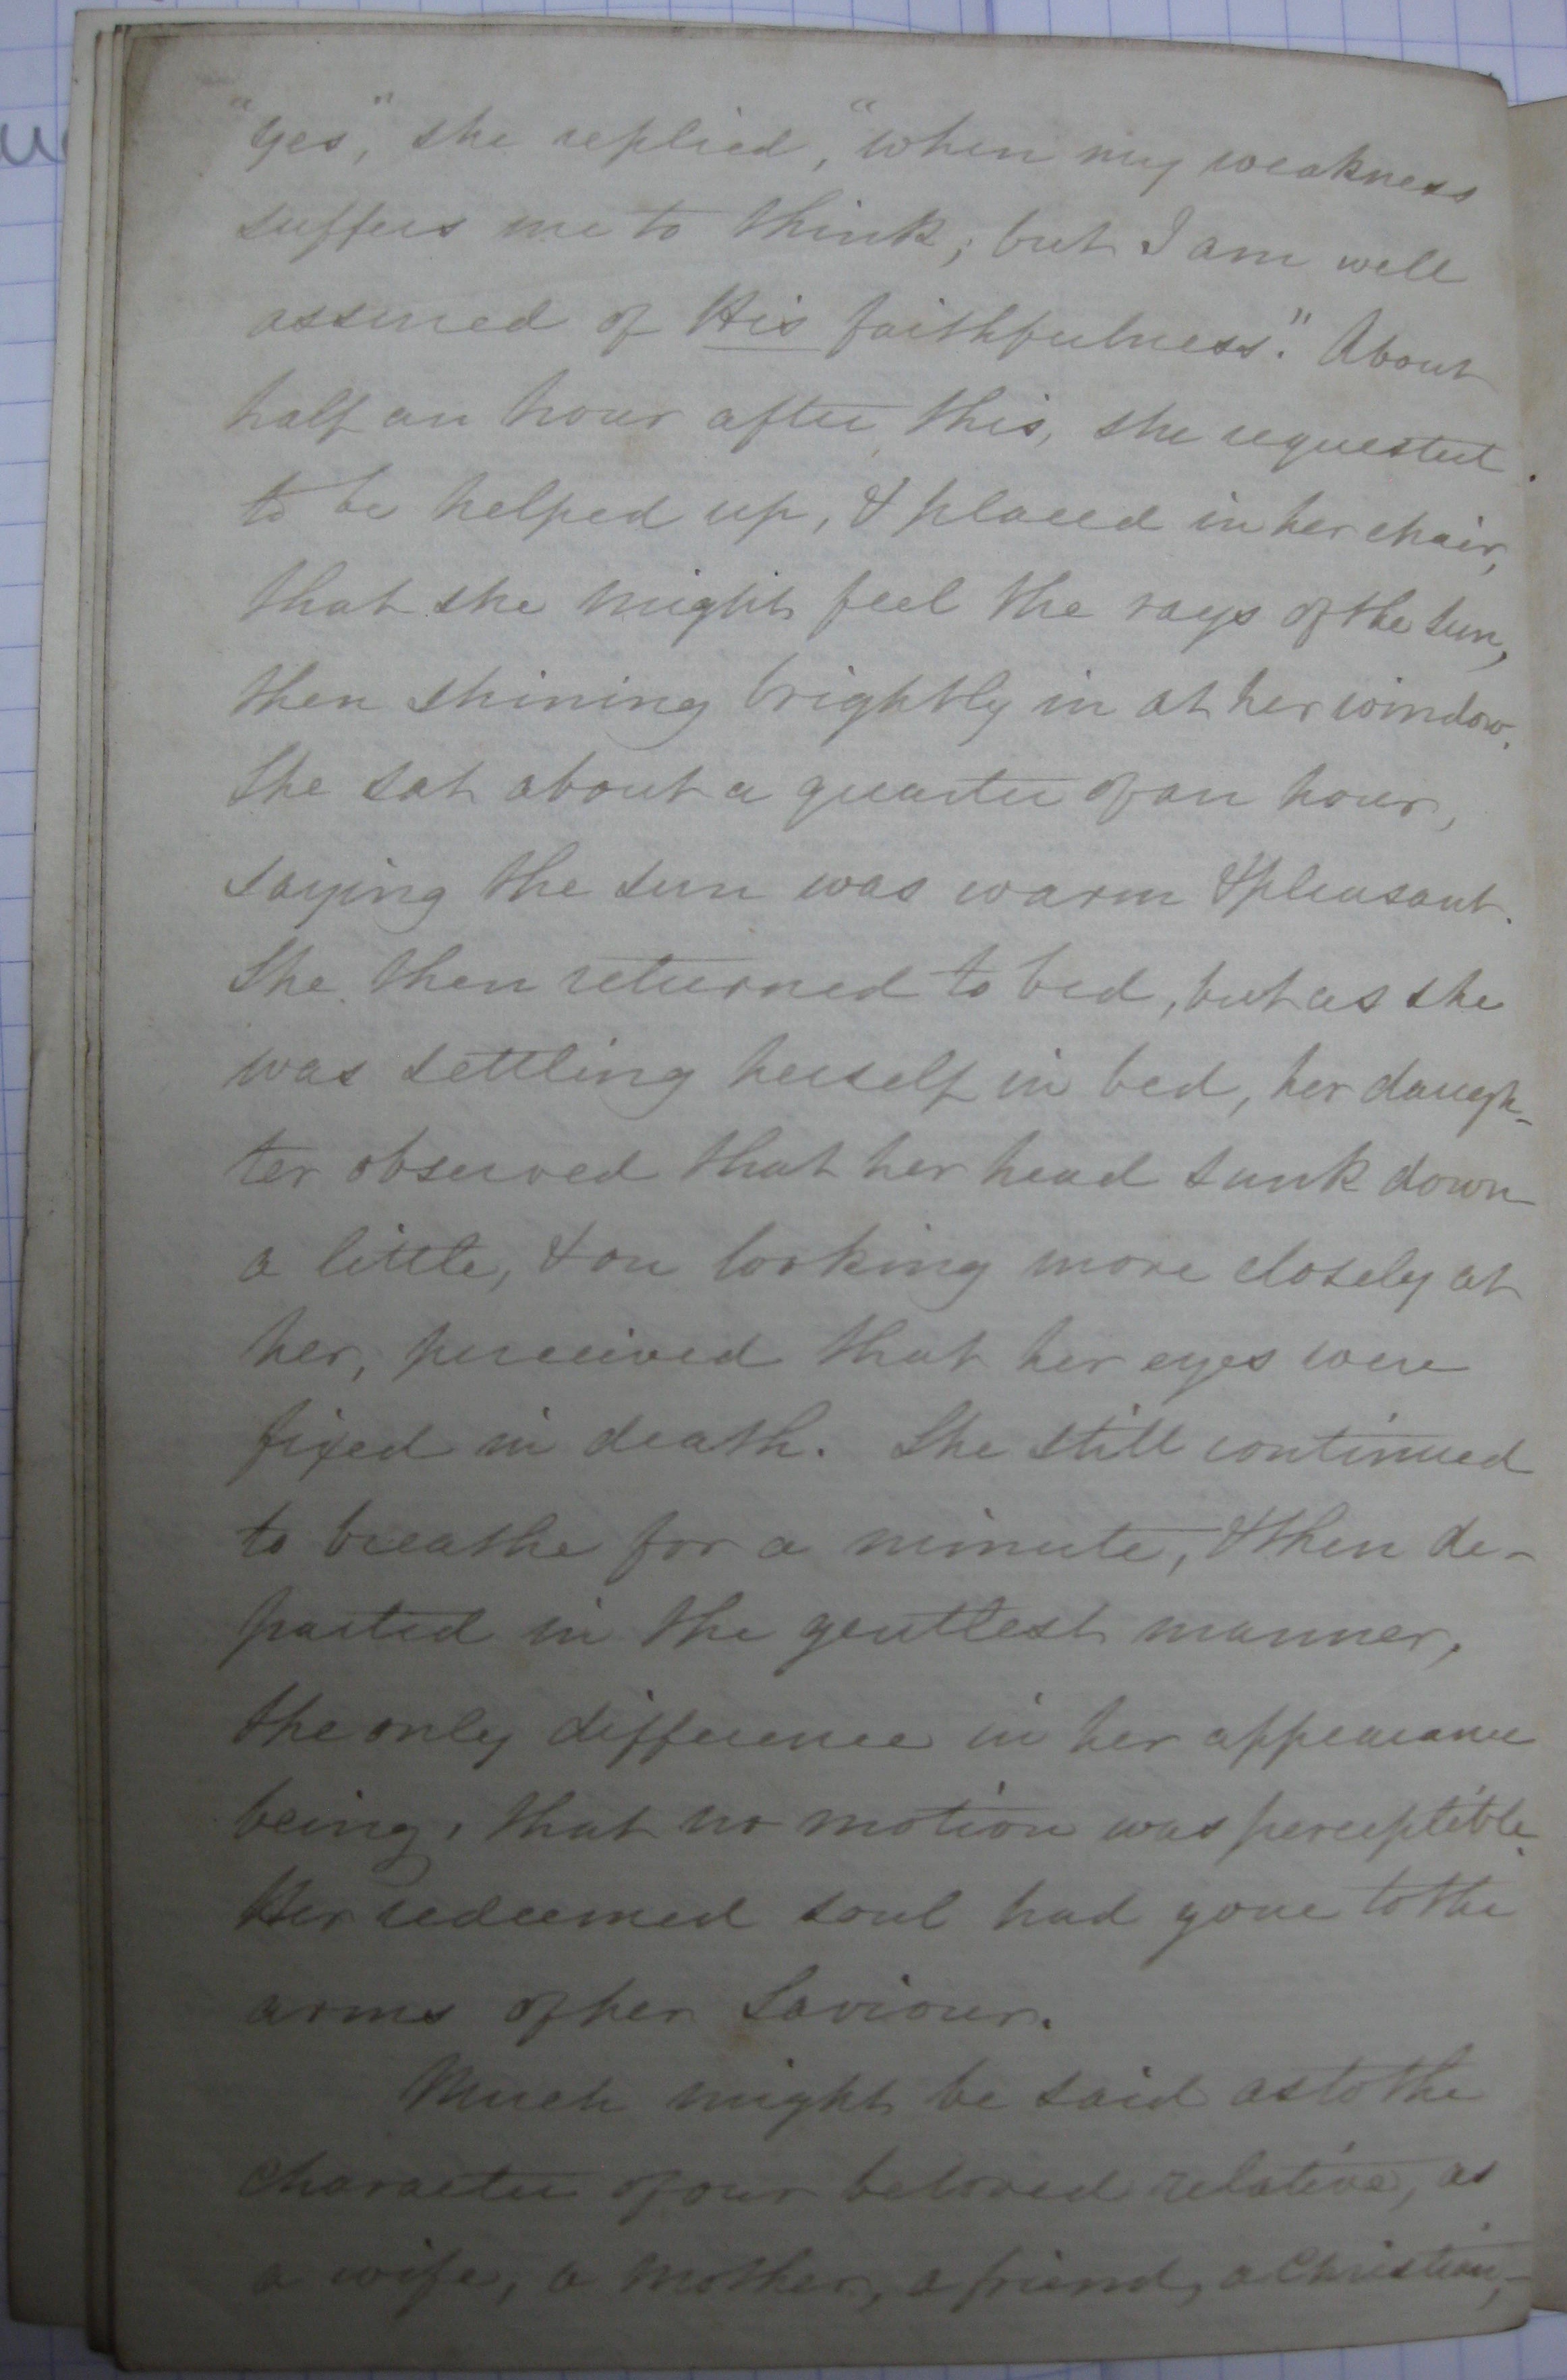 "Yes," she replied, "when my weakness
suffers me to think; but I am well
assured of His faithfulness." About
half an hour after this, she requested
to be helped up, & placed in her chair,
that she might feel the rays of the sun,
then shining brightly in at her window.
She sat about a quarter of an hour,
saying the sun was warm & pleasant.
She then returned to bed, but as she
was settling herself in bed, her daugh-
ter observed that her head sunk down
a little, & on looking more closely at
her, perceived that her eyes were
fixed in death. She still continued
to breathe for a minute, & then de-
parted in the gentlest manner,
the only difference in her appearance
being, that no motion was perceptible.
Her redeemed soul had gone to the
arms of her Saviour.
Much might be said as to the
character of our beloved relative, as
a wife, a mother, a friend, a Christian,-